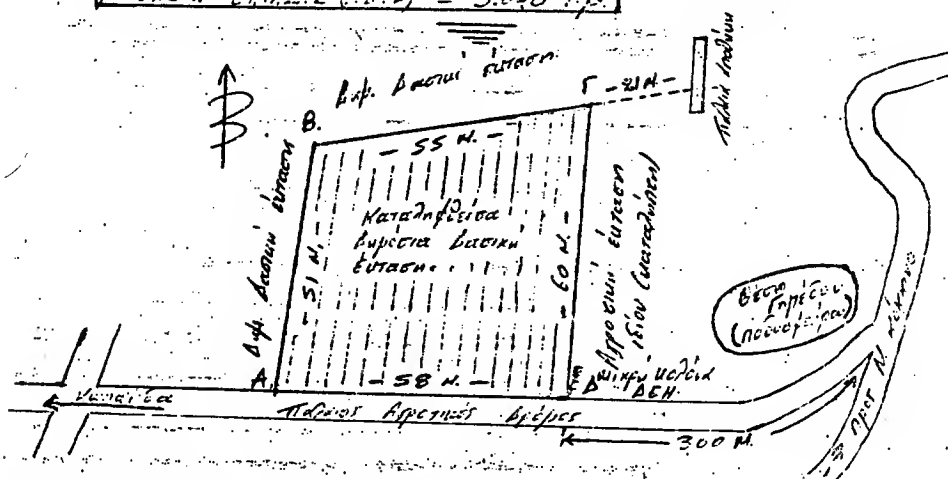 = 3.050 τ.μ.
Δημ. Δασική έκταση
Γ - 21 Μ. -
Παλαιά αποθήκη
Β.
- 55 Μ. -
Δημ. Δασική έκταση
- 51 Μ. -
Καταληφθείσα
Δημόσια Δασική
έκταση.
- 60 Μ. -
Αγροτική έκταση
ιδίου (καταλήπτου)
Θέση
Γηπέδου
(ποδοσφαίρου)
Α
- 58 Μ. -
Δ
μικρή κολώνα
ΔΕΗ.
Παλαιός Αγροτικός Δρόμος
300 Μ.
προς Ν.